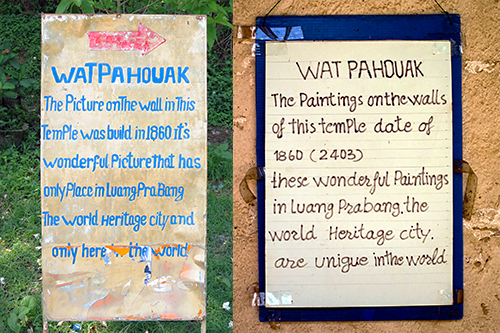 WAT PAHOUAK
The Picture on The wall in This
Temple was build in 1860 it's
wonderful Picture that has
only Place in Luang PraBang
The world Heritage city and
only here the world
WAT PAHOUAK
The Paintings on the walls
of this temple date of
1860 (2403)
these wonderful Paintings
in Luang Prabang. the
world Heritage city.
are unigue in the world